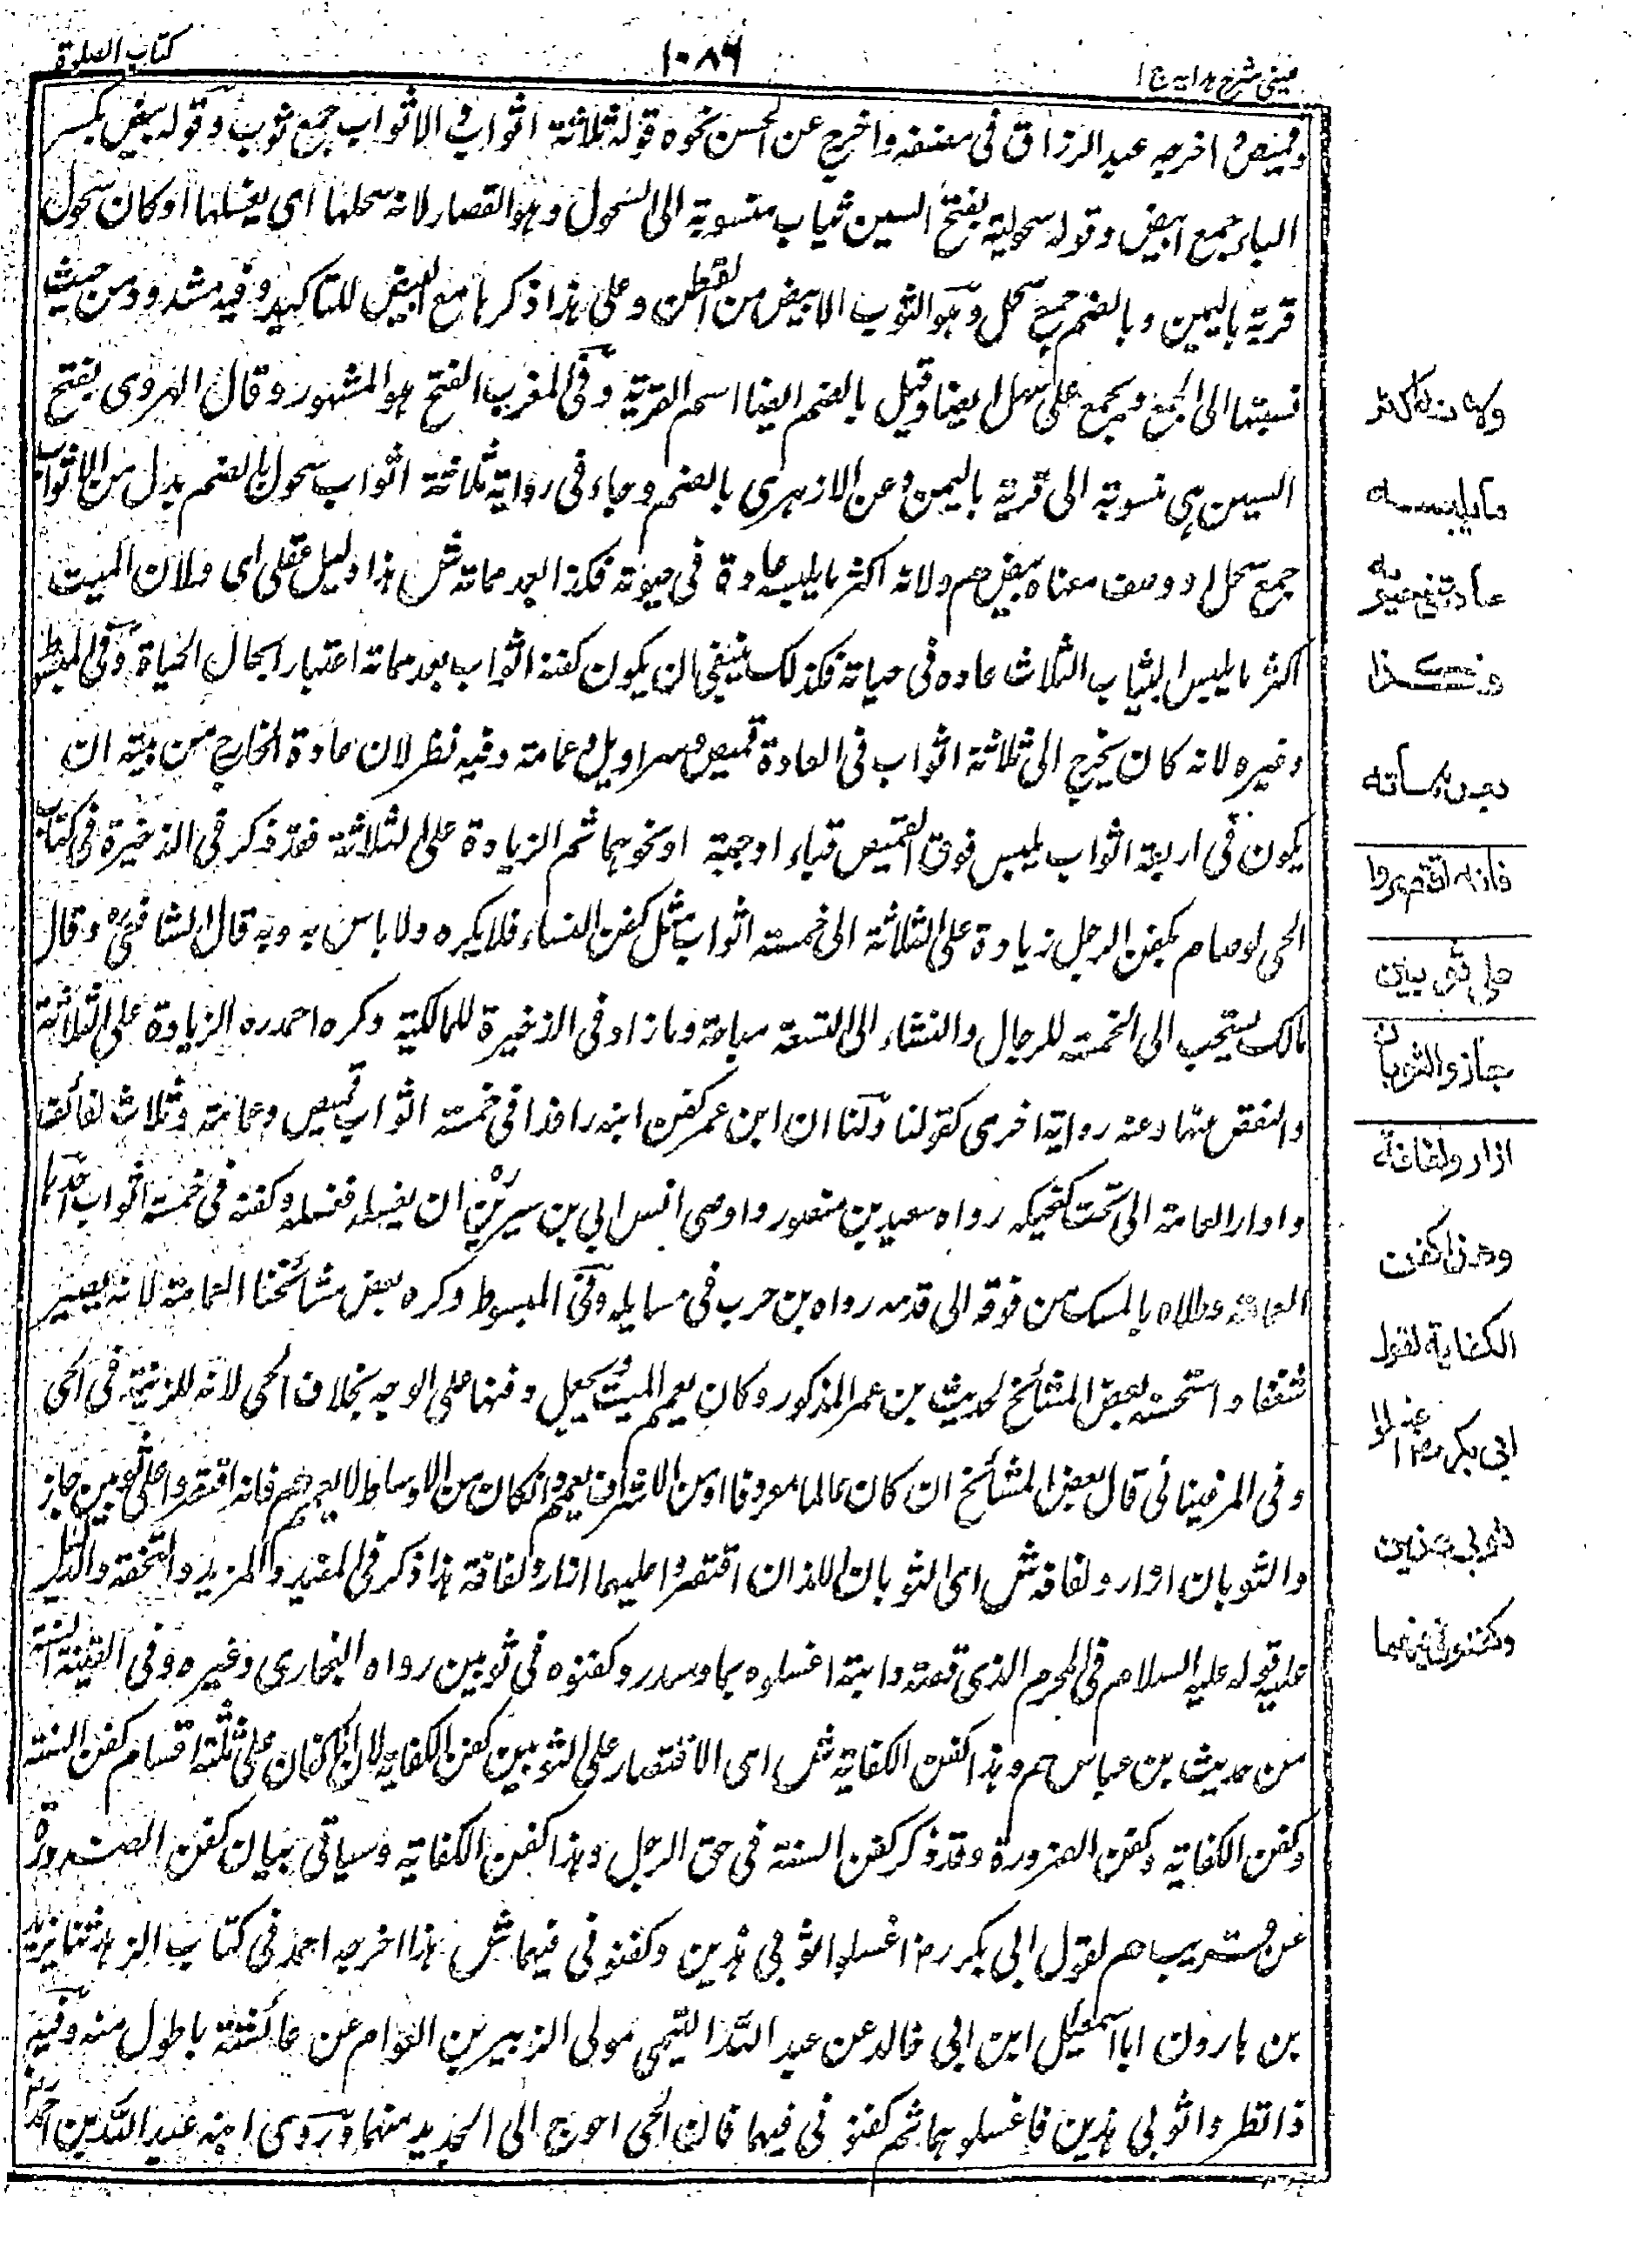 عینی شرح ہدایہ ج ۱
۱۰۸۶
کتاب الصلوة
وقمیص اخرجہ عبد الرزاق فی مصنفہ واخرج عن الحسن نحوہ قولہ ثلاثة اثواب والاثواب جمع ثوب وقولہ بیض بکسر
الباء جمع ابیض وقولہ سحولیة بفتح السین ثیاب منسوبة الی السحول وہو القصار لانہ سحلہا ای یغسلہا او کان سحول
قریة بالیمن وبالضم جمع سحل وہو الثوب الابیض من القطن وعلی ہذا ذکرہا مع البیض للتاکید وفیہ شذوذ من حیث
نسبتہا الی الجمع ویجمع علی سحل ایضا وقیل بالضم ایضا اسم القریة وفی المغرب الفتح ہو المشہور وقال الہروی بفتح
السین ہی منسوبة الی قریة بالیمن وعن الازہری بالضم وجاء فی روایة ثلاثة اثواب سحول بالضم بدل من الاثواب
جمع سحل او وصف معناہ بیض م ولانہ اکثر ما یلبسہ عادة فی حیوتہ فکذا بعد مماتہ ش ہذا دلیل عقلی ای ولان المیت
اکثر ما یلبس الثیاب الثلاث عادہ فی حیاتہ فکذلک ینبغی ان یکون کفنہ اثواب بعد مماتہ اعتبارا بحال الحیاة وفی المبسوط
وغیرہ لانہ کان یخرج الی ثلاثة اثواب فی العادة قمیص وسراویل وعمامة وفیہ نظر لان عادة الخارج من بیتہ ان
یکون فی اربعة اثواب یلبس فوق القمیص قباء او جبة او نحوہما ثم الزیادة علی الثلاثة فقد ذکر فی الذخیرة فی کتاب
الحی لوصام یکفن الرجل زیادة علی الثلاثة الی خمستہ اثواب مثل کفن النساء فلا یکرہ ولا باس بہ وبہ قال الشافعی رہ وقال
مالک یستحب الی الخمسة للرجال والنساء الی التسعة مباحة وما زاد فی الذخیرة للمالکیة وکرہ احمد رہ الزیادة علی الثلاثة
والنقص عنہا وعنہ روایة اخری کقولنا ولنا ان ابن عمر کفن ابنہ واقدا فی خمستہ اثواب قمیص وعمامة وثلاث لفائف
وادار العمامة الی تحت کفحیکہ رواہ سعید بن منصور واوصی انس الی بن سیرین ان یغسلہ فغسلہ وکفنہ فی خمستہ اثواب احدہا
العمامة وطلاہ بالمسک من فوقہ الی قدمہ رواہ بن حرب فی مسایلہ وفی المبسوط وکرہ بعض مشائخنا العمامة لانہ یصیر
شفعا واستحسنہ بعض المشائخ لحدیث بن عمر المذکور وکان یعمم المیت ویجعل ذنبہا علی الوجہ بخلاف الحی لانہ للزینة فی الحی
وفی المرغینانی قال بعض المشائخ ان کان عالما معروفا او من الاشراف یعمم وان کان من الاوساط لا یعمم م فان اقتصروا علی ثوبین جاز
والثوبان ازار ولفافة ش ای الثوبان اللذان اقتصروا علیہما ازار ولفافة ہذا ذکر فی المفید والمزید والتحفة والدلیل
علیہ قولہ علیہ السلام فی المحرم الذی وقصتہ دابتہ اغسلوہ بماء وسدر وکفنوہ فی ثوبین رواہ البخاری وغیرہ وفی القنیة
من حدیث بن عباس م وہذا کفن الکفایة ش ای الاقتصار علی الثوبین کفن الکفایة لان الاکفان علی ثلثة اقسام کفن السنة
وکفن الکفایة وکفن الضرورة وقد ذکر کفن السنة فی حق الرجل وہذا کفن الکفایة وسیاتی بیان کفن الضرورة
عن قریب م لقول ابی بکر رض اغسلوا ثوبی ہذین وکفنونی فیہما ش ہذا اخرجہ احمد فی کتاب الزہد ثنا یزید
بن ہارون انا اسمعیل ابن ابی خالد عن عبد اللہ التیمی مولی الزبیر بن العوام عن عائشة باطول منہ وفیہ
وانظروا ثوبی ہذین فاغسلوہما ثم کفنونی فیہما فان الحی احوج الی الجدید منہما وروی ابنہ عبد اللہ بن احمد
ولانہ اکثر
ما یلبسہ
عادة فی حیوتہ
فکذا
بعد مماتہ
فان اقتصروا
علی ثوبین
جاز والثوبان
ازار ولفافة
وهذا کفن
الکفایة لقول
ابی بکر رض اغسلوا
ثوبی هذین
وکفنونی فیهما